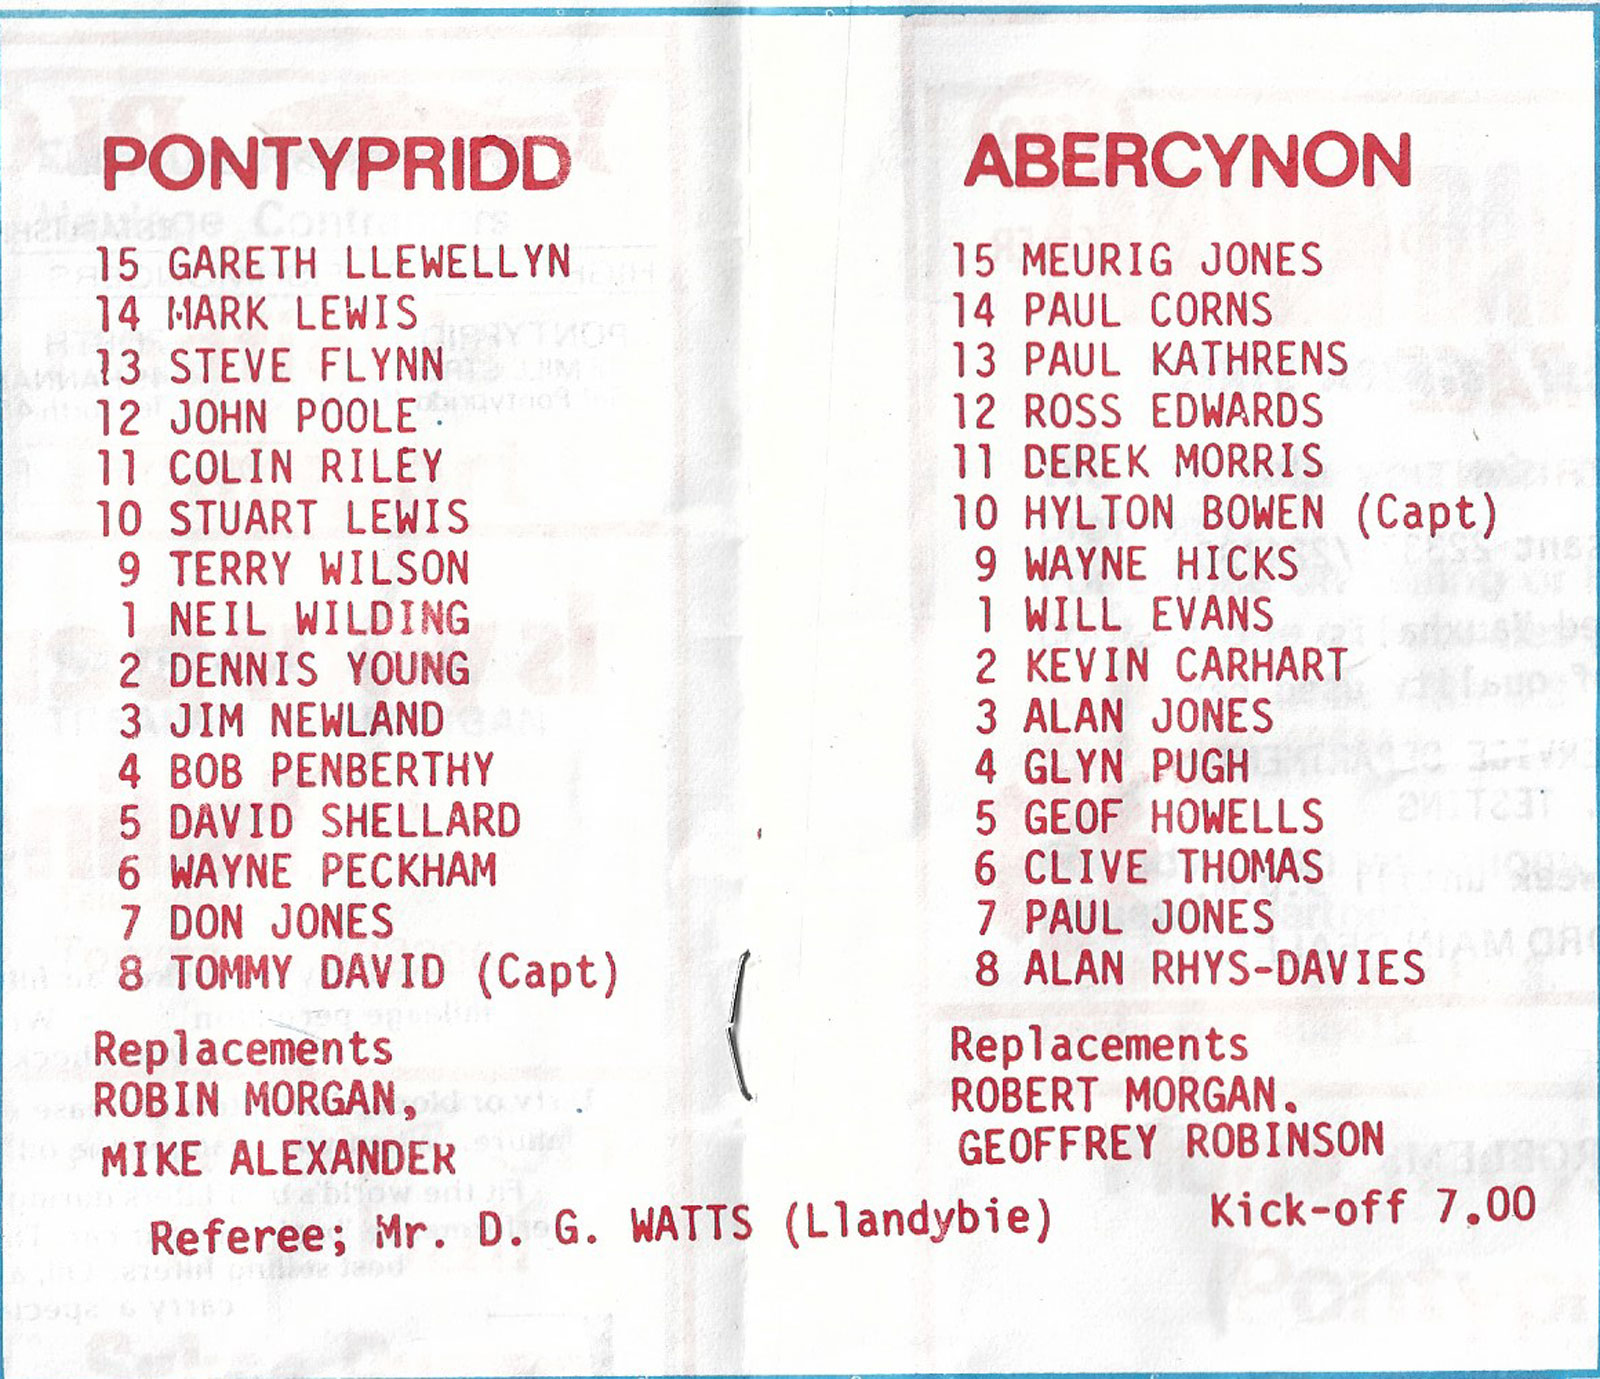 PONTYPRIDD
15 GARETH LLEWELLYN
14 MARK LEWIS
13 STEVE FLYNN
12 JOHN POOLE
11 COLIN RILEY
10 STUART LEWIS
9 TERRY WILSON
1 NEIL WILDING
2 DENNIS YOUNG
3 JIM NEWLAND
4 BOB PENBERTHY
5 DAVID SHELLARD
6 WAYNE PECKHAM
7 DON JONES
8 TOMMY DAVID (Capt)
Replacements
ROBIN MORGAN,
MIKE ALEXANDER
ABERCYNON
15 MEURIG JONES
14 PAUL CORNS
13 PAUL KATHRENS
12 ROSS EDWARDS
11 DEREK MORRIS
10 HYLTON BOWEN (Capt)
9 WAYNE HICKS
1 WILL EVANS
2 KEVIN CARHART
3 ALAN JONES
4 GLYN PUGH
5 GEOF HOWELLS
6 CLIVE THOMAS
7 PAUL JONES
8 ALAN RHYS-DAVIES
Replacements
ROBERT MORGAN.
GEOFFREY ROBINSON
Referee; Mr. D. G. WATTS (Llandybie)
Kick-off 7.00